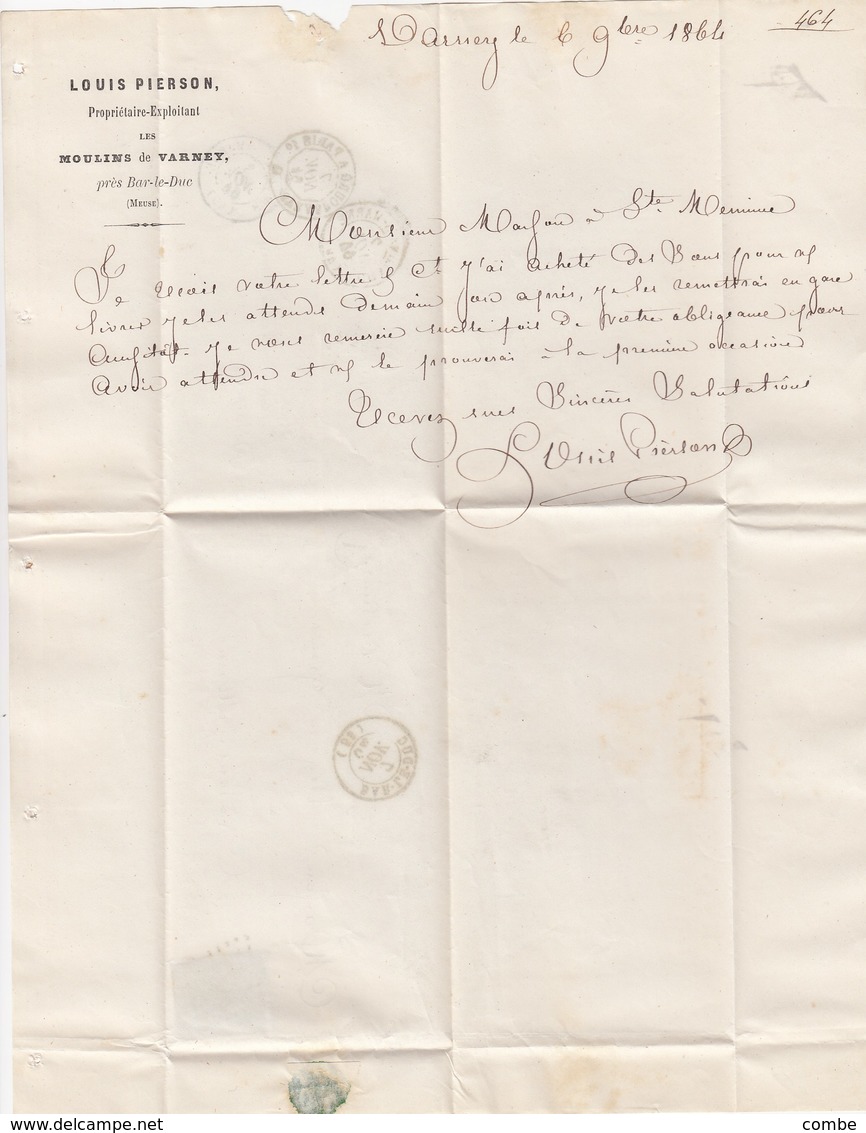 464
Varney le 6 9bre 1864
LOUIS PIERSON,
Propriétaire-Exploitant
LES
MOULINS de VARNEY,
près Bar-le-Duc
(MEUSE).
Monsieur à Ste Menune
Je votre lettre & j'ai acheté des pour
livrer je les attends demain ou après, je les remettrai en gare
je vous remercie fois de votre obligeance pour
avoir attendre et le prouverai à la première occasion
Recevez mes Sincères Salutations
Louis Pierson
BAR-LE-DUC
7
NOV
(53)
delcampe.net
combe